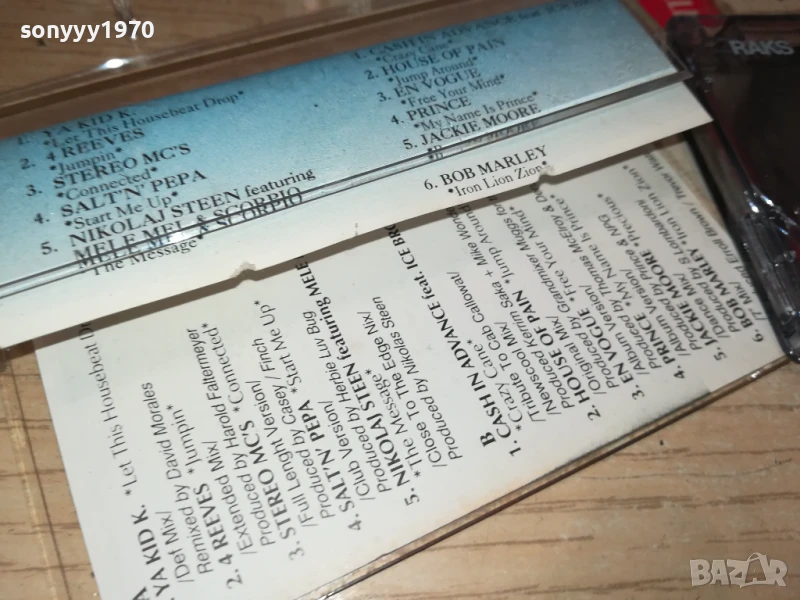 sonyyy1970
RAKS
1. YA KID K.
"Let This Housebeat Drop"
2. 4 REEVES
"Jumpin"
3. STEREO MC'S
"Connected"
4. SALT'N' PEPA
"Start Me Up"
5. NIKOLAJ STEEN featuring
MELE MEL & SCORPIO
"The Message"
1. CASH IN ADVANCE feat.
"Crazy Cane"
2. HOUSE OF PAIN
"Jump Around"
3. EN VOGUE
"Free Your Mind"
4. PRINCE
"My Name Is Prince"
5. JACKIE MOORE
6. BOB MARLEY
"Iron Lion Zion"
A
YA KID K. "Let This Housebeat
/Def Mix/
Remixed by David Morales
2. 4 REEVES "Jumpin"
/Extended Mix/
Produced by Harold Faltermeyer
3. STEREO MC'S "Connected"
/Full Lenght Version/
Produced by Casey / Finch
4. SALT'N' PEPA "Start Me Up"
/Club Version/
Produced by Herbie Luv Bug
5. NIKOLAJ STEEN featuring MELE
"The Message"
/Close To The Edge Mix/
Produced by Nikolas Steen
B
1. CASH IN ADVANCE feat. ICE
"Crazy Cane"
/Tribute To Cab Callowai/
Newscool Kerim Saka + Mike
2. HOUSE OF PAIN "Jump Around"
/Original Mix/
Produced by Grandmixer Muggs for
3. EN VOGUE "Free Your Mind"
/Album Version/
Produced by Thomas McElroy & D
4. PRINCE "My Name Is Prince"
/Album Version/
Produced by Prince & NPG
5. JACKIE MOORE "Precious"
/Dance Mix/
Produced by
6. BOB MARLEY "Iron Lion Zion"
Errol Brown / Trevor
BAZAR.bg